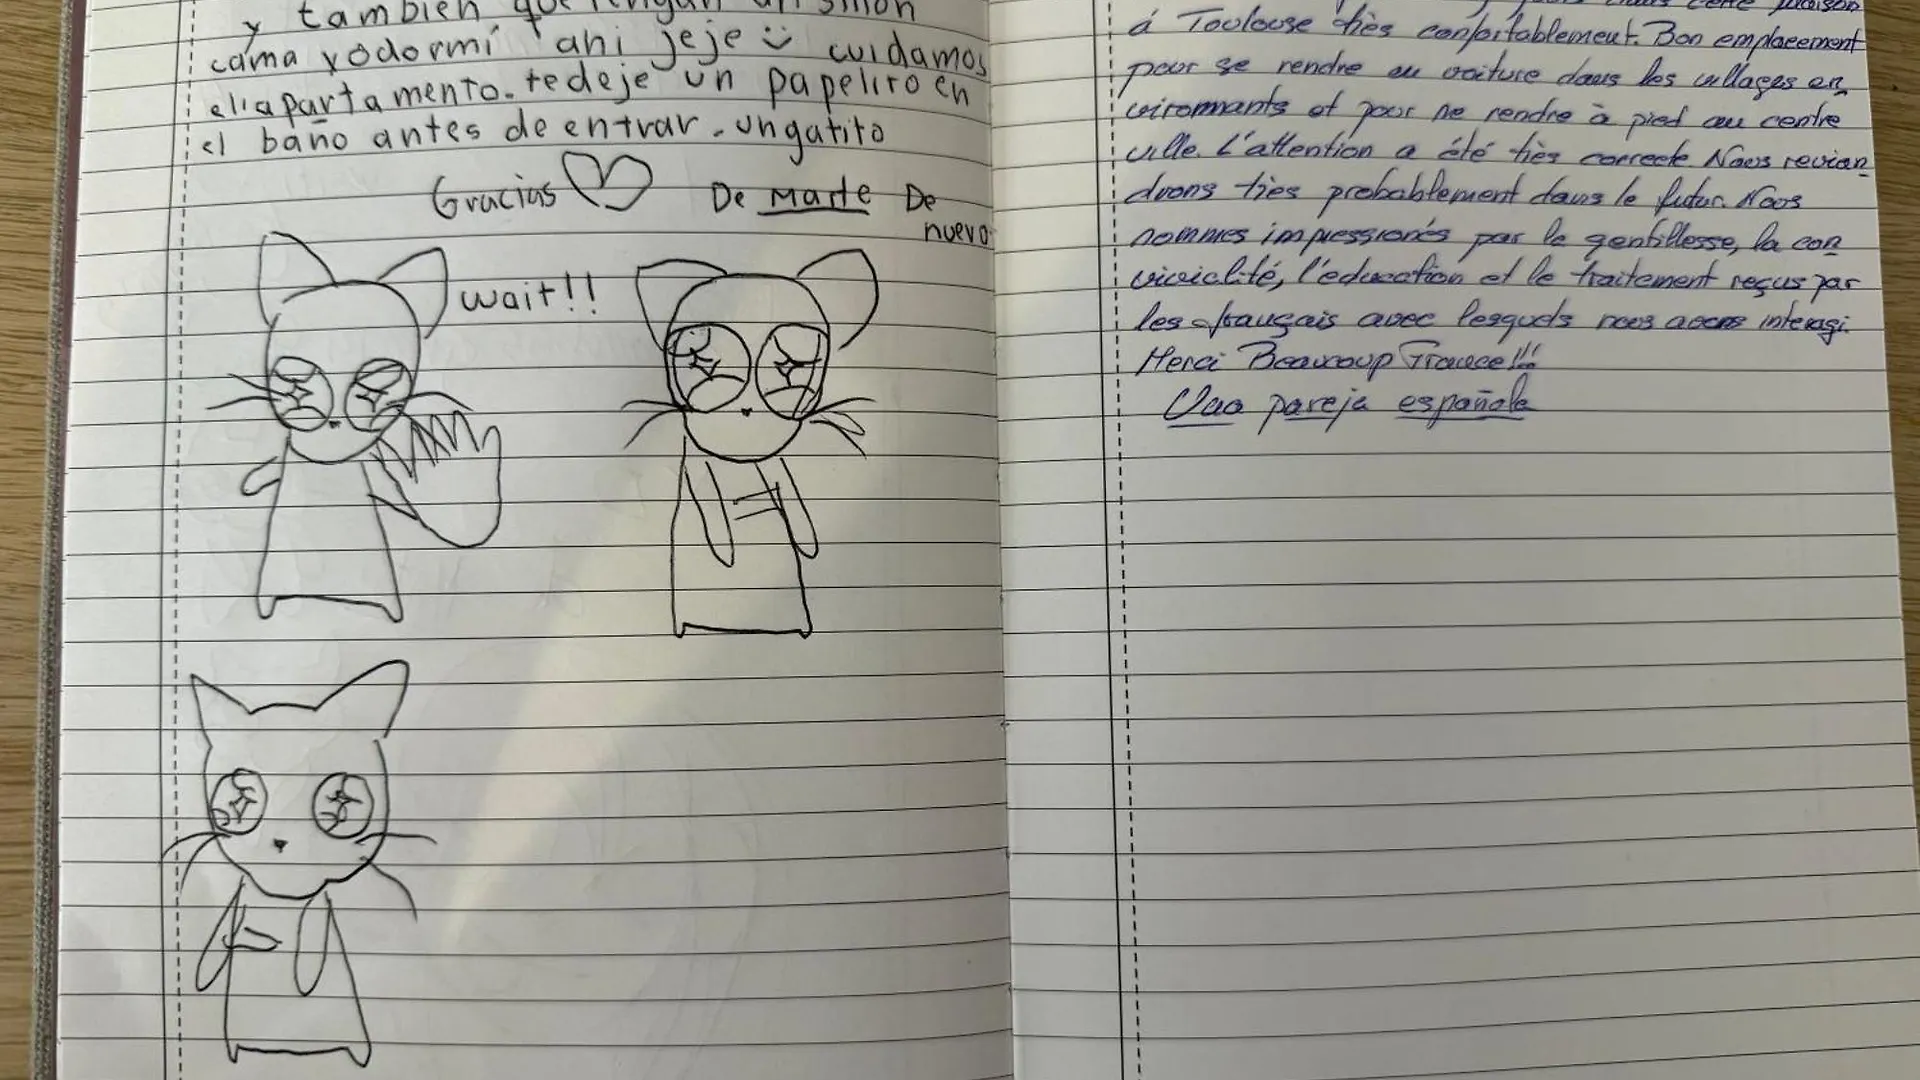 y también que tengan un sillón
cama yo dormí ahi jeje cuidamos
el apartamento. te deje un papelito en
el baño antes de entrar. un gatito
Gracias De Marte De
nuevo
wait!!
cette maison
á Toulouse très confortablement. Bon emplacement
pour se rendre en voiture dans les villages en
vironnants et pour se rendre à pied au centre
ville. L'attention a été très correcte Nous revien
drons très probablement dans le futur. Nous
sommes impressionés par la gentillesse, la con
vivialité, l'éducation et le traitement reçus par
les français avec lesquels nous avons interagi.
Merci Beaucoup France!!!
Una pareja española